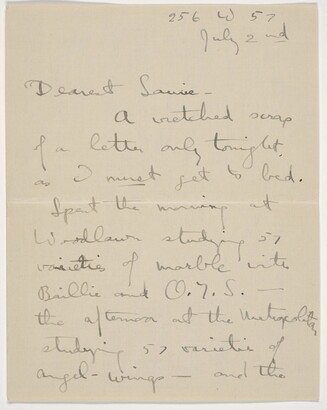 256 W 57
July 2nd
Dearest Louise -
A wretched scrap
of a letter only tonight
as I must get to bed.
Spent the morning at
Woodlawn studying 57
varieties of marble with
Baillie and O.Y.S. —
the afternoon at the Metropolitan,
studying 57 varieties of
angel-wings — and the